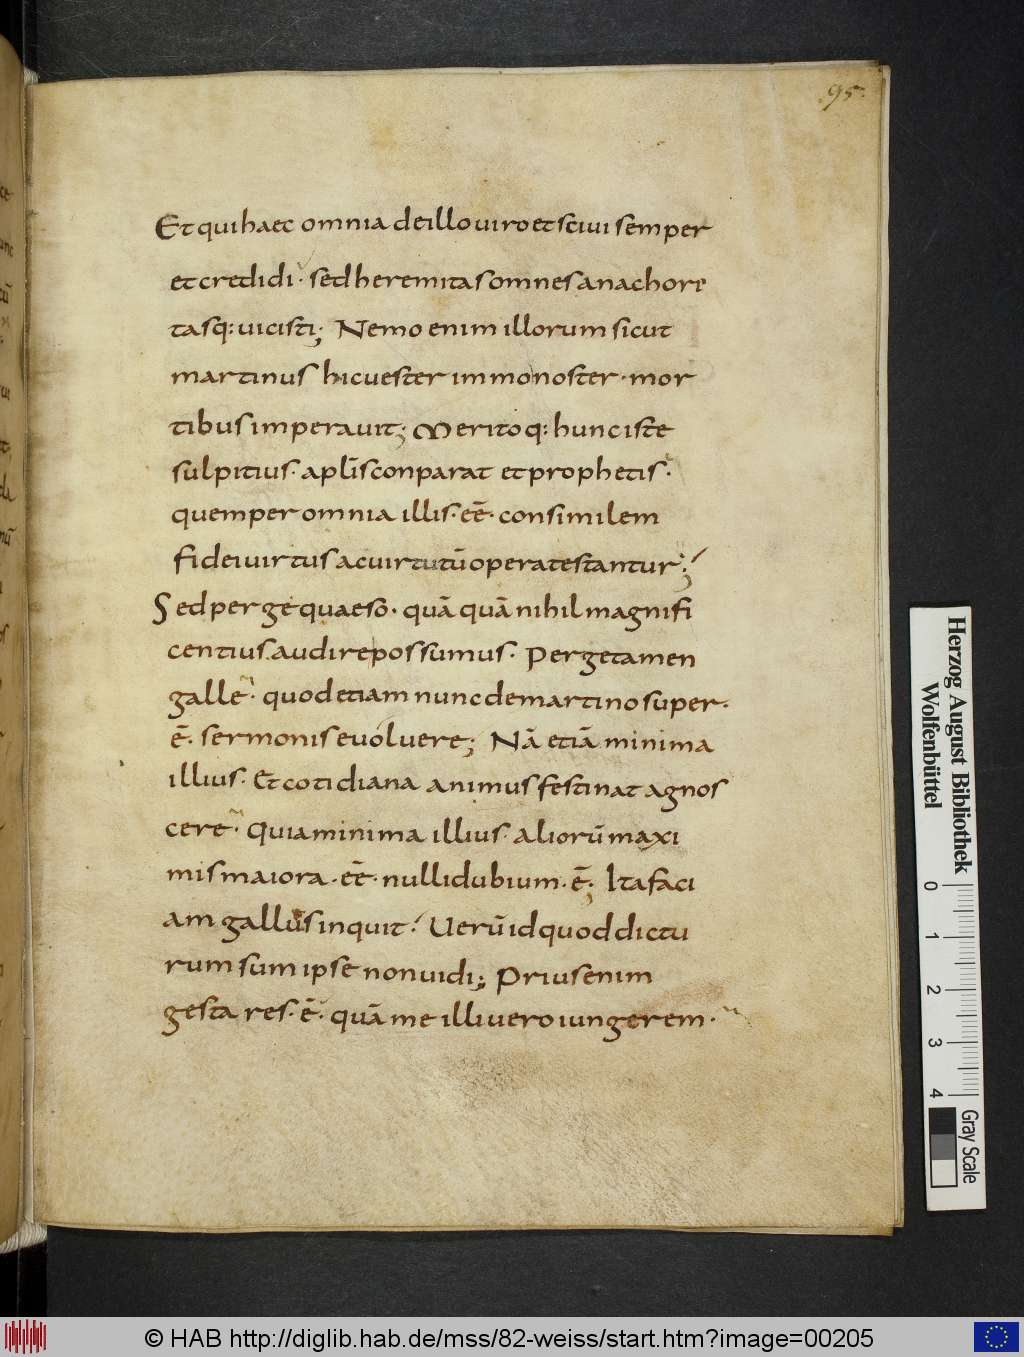 95.
Et qui haec omnia de illo viro et scivi semper
et credidi · sed heremitas omnes anachore
tasq: vicisti; Nemo enim illorum sicut
martinus hic vester immo noster · mor
tibus imperavit; Meritoq: hunc iste
sulpitius · apl̄is conparat et prophetis ·
quem per omnia illis · eē · consimilem
fidei virtus ac virtutū opera testantur;
Sed perge quaeso · quā quā nihil magnifi
centius audire possumus · Perge tamen
galle · quod etiam nunc de martino super ·
ē · sermonis evolvere; Nā etiā minima
illius · Et cotidiana animus festinat agnos
cere · Quia minima illius · aliorū maxi
mis maiora · eē · nulli dubium · ē; Ita faci
am gallus inquit · Verū id quod dictu
rum sum ipse non vidi; Prius enim
gesta res · ē · quā me illi vero iungerem ·
Herzog August Bibliothek
Wolfenbüttel
0 1 2 3 4
Gray Scale
© HAB http://diglib.hab.de/mss/82-weiss/start.htm?image=00205